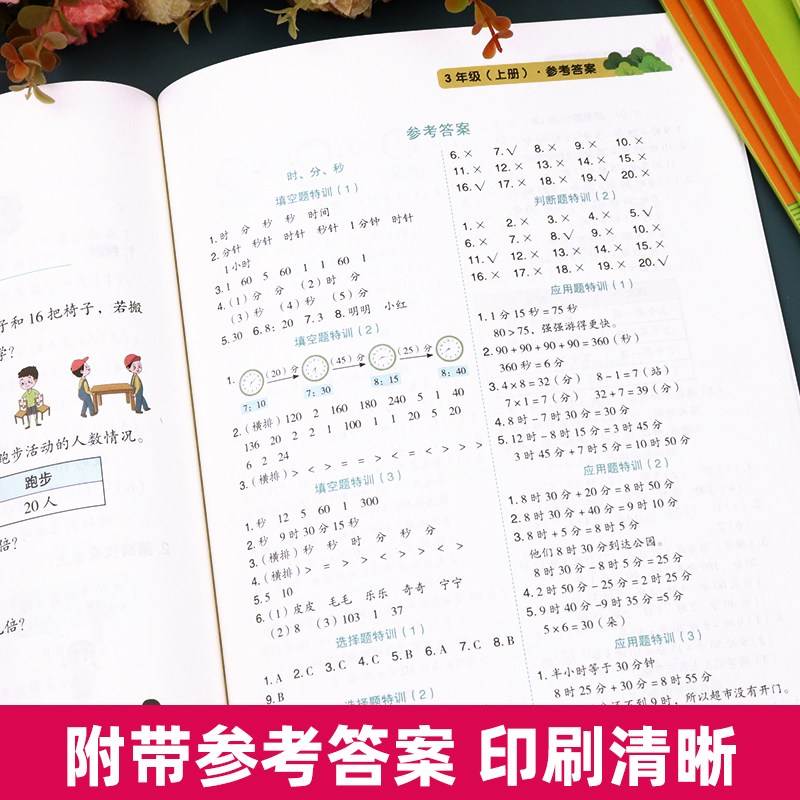 3年级(上册)·参考答案
参考答案
时、分、秒
填空题特训(1)
1.时 分 秒 秒 时间
2.分针 秒针 时针 秒针 1分钟 时针
1小时
3.1 60 5 60 1 1 60 1
4.(1)分 分 (2)时 分
(3)秒 (4)秒 (5)分
5.30 6.8:20 7.3 8.明明 小红
填空题特训(2)
1. (20)分 (45)分 (25)分
7:10 7:30 8:15 8:40
2.(横排)120 2 160 180 240 5 1 40
136 20 2 2 1 100 1 1 20 5 20
6 2 24
3.(横排)> < > = = > < = < > > >
填空题特训(3)
1.秒 12 5 60 1 300
2.秒 9时30分15秒
3.(横排)秒 秒 时 分 秒 分
4.(横排)> = > > < > > < >
5.5 10
6.(1)皮皮 毛毛 乐乐 奇奇 宁宁
(2)8 (3)103 1 37
选择题特训(1)
1.A 2.C 3.C 4.C 5.B 6.A 7.C 8.B
9.B
选择题特训(2)
6.× 7.√ 8.× 9.× 10.×
11.× 12.× 13.× 14.× 15.×
16.√ 17.× 18.× 19.√ 20.×
判断题特训(2)
1.× 2.× 3.× 4.× 5.√
6.× 7.× 8.√ 9.× 10.×
11.√ 12.× 13.× 14.× 15.×
16.× 17.× 18.× 19.× 20.√
应用题特训(1)
1.1分15秒=75秒
80>75,强强游得更快。
2.90+90+90+90=360(秒)
360秒=6分
3.4×8=32(分) 8-1=7(站)
7×1=7(分) 32+7=39(分)
4.8时-7时30分=30分
5.12时-8时15分=3时45分
3时45分+7时5分=10时50分
应用题特训(2)
1.8时30分+20分=8时50分
2.8时30分+40分=9时10分
3.8时+5分=8时5分
他们8时30分到达公园。
8时30分-8时5分=25分
4.2时50分-25分=2时25分
5.9时40分-9时35分=5分
5×6=30(朵)
应用题特训(3)
1.半小时等于30分钟
8时25分+30分=8时55分
不到9时,所以超市没有开门。
子和16把椅子,若搬
学?
跑步活动的人数情况。
跑步
20人
倍?
几倍?
附带参考答案 印刷清晰